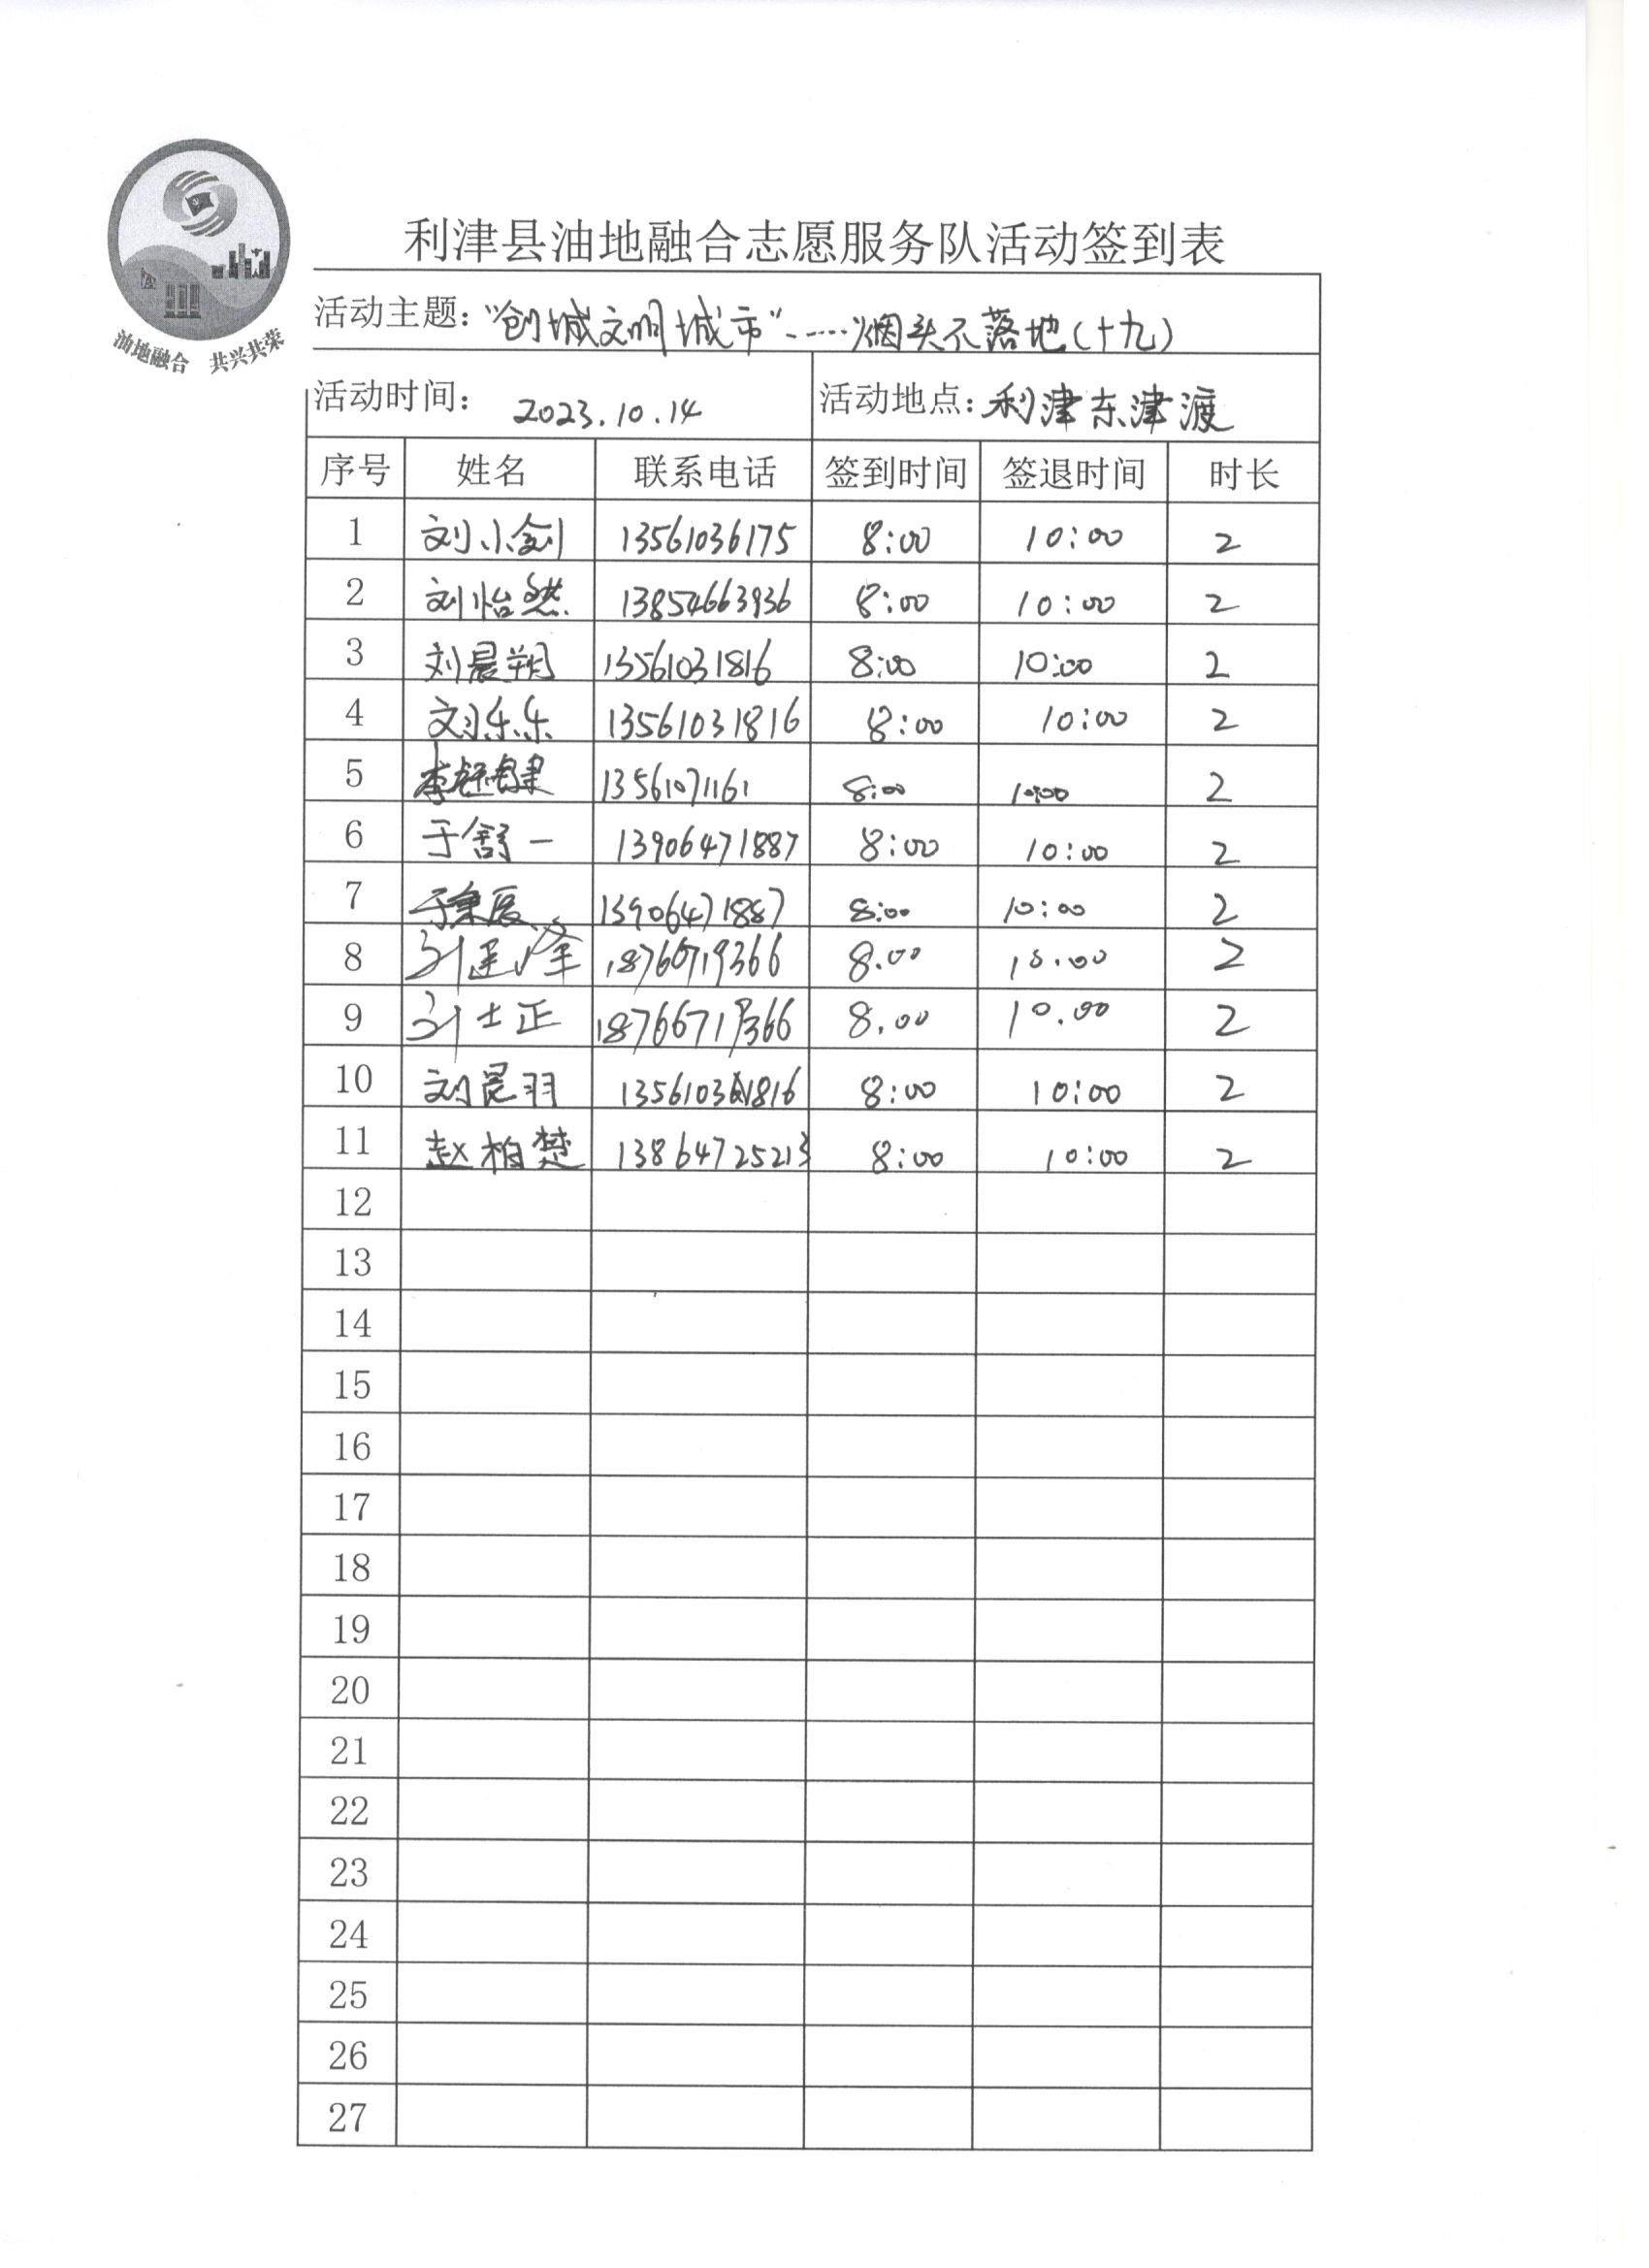 油地融合 共兴共荣
利津县油地融合志愿服务队活动签到表
活动主题：“创城文明城市”-----烟头不落地(十九)
活动时间： 2023.10.14 活动地点：利津东津渡
序号 姓名 联系电话 签到时间 签退时间 时长
1 刘小剑 13561036175 8:00 10:00 2
2 刘怡然 13854663936 8:00 10:00 2
3 刘晨朔 13561031816 8:00 10:00 2
4 刘乐乐 13561031816 8:00 10:00 2
5 李 13561071161 8:00 10:00 2
6 于舒一 13906471887 8:00 10:00 2
7 于秉辰 13906471887 8:00 10:00 2
8 刘 8.00 10.00 2
9 刘士正 8.00 10.00 2
10 刘晨羽 8:00 10:00 2
11 赵柏楚 13864725213 8:00 10:00 2
12
13
14
15
16
17
18
19
20
21
22
23
24
25
26
27